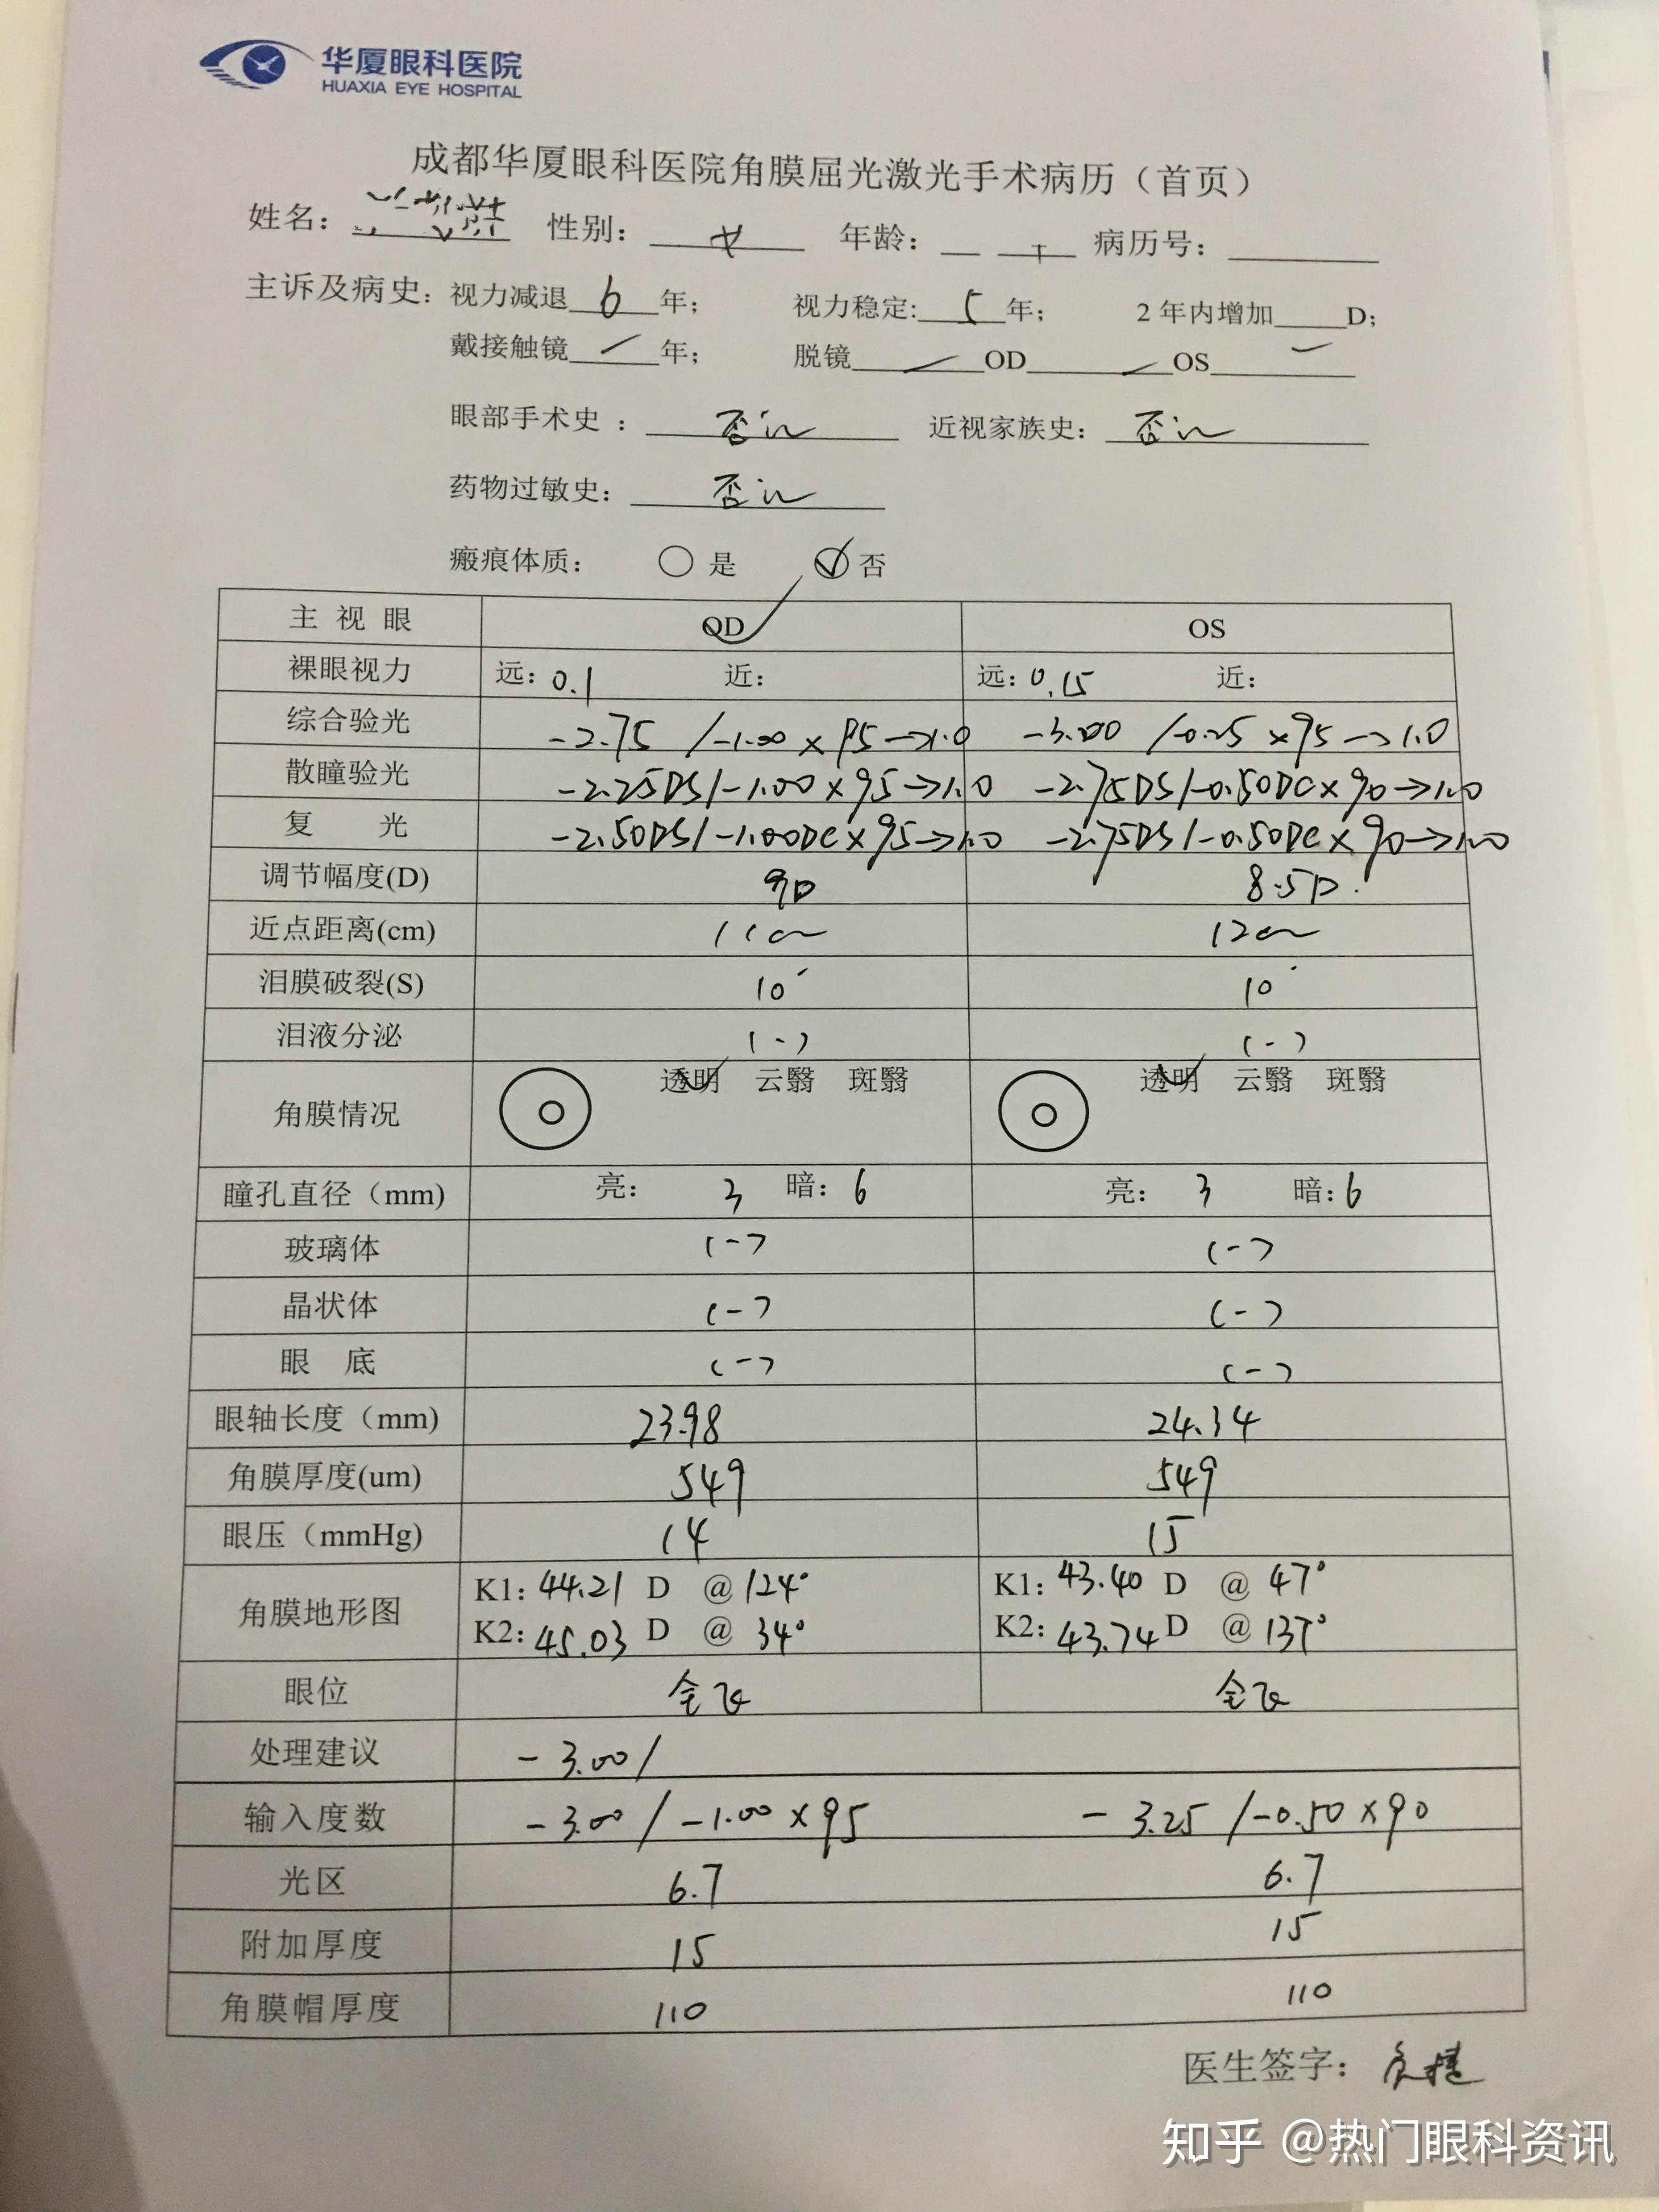 华厦眼科医院
HUAXIA EYE HOSPITAL
成都华厦眼科医院角膜屈光激光手术病历（首页）
姓名： 性别： 女 年龄： 病历号：
主诉及病史：视力减退 6 年； 视力稳定: 5 年； 2 年内增加 D；
戴接触镜 / 年； 脱镜 / OD / OS
眼部手术史 ： 否认 近视家族史： 否认
药物过敏史： 否认
瘢痕体质： ○ 是 ☑ 否
主 视 眼 OD ✓ OS
裸眼视力 远：0.1 近： 远：0.15 近：
综合验光 -2.75 /-1.00 × 95→1.0 -3.00 /-0.25 ×95→1.0
散瞳验光 -2.25DS/-1.00 × 95→1.0 -2.75DS/-0.50DC× 90→1.0
复 光 -2.50DS/-1.00DC×95→1.0 -2.75DS/-0.50DC×90→1.0
调节幅度(D) 9D 8.5D.
近点距离(cm) 11cm 12cm
泪膜破裂(S) 10 10
泪液分泌 (-) (-)
角膜情况 透明 ✓ 云翳 斑翳 透明 ✓ 云翳 斑翳
瞳孔直径（mm) 亮： 3 暗：6 亮： 3 暗：6
玻璃体 (-) (-)
晶状体 (-) (-)
眼 底 (-) (-)
眼轴长度（mm) 23.98 24.34
角膜厚度(um) 549 549
眼压（mmHg) 14 15
角膜地形图 K1：44.21 D @ 124° K1：43.40 D @ 47°
K2：45.03 D @ 34° K2：43.74 D @ 137°
眼位
处理建议 -3.00/
输入度数 -3.00/-1.00×95 -3.25/-0.50×90
光区 6.7 6.7
附加厚度 15 15
角膜帽厚度 110 110
医生签字：
知乎 @热门眼科资讯